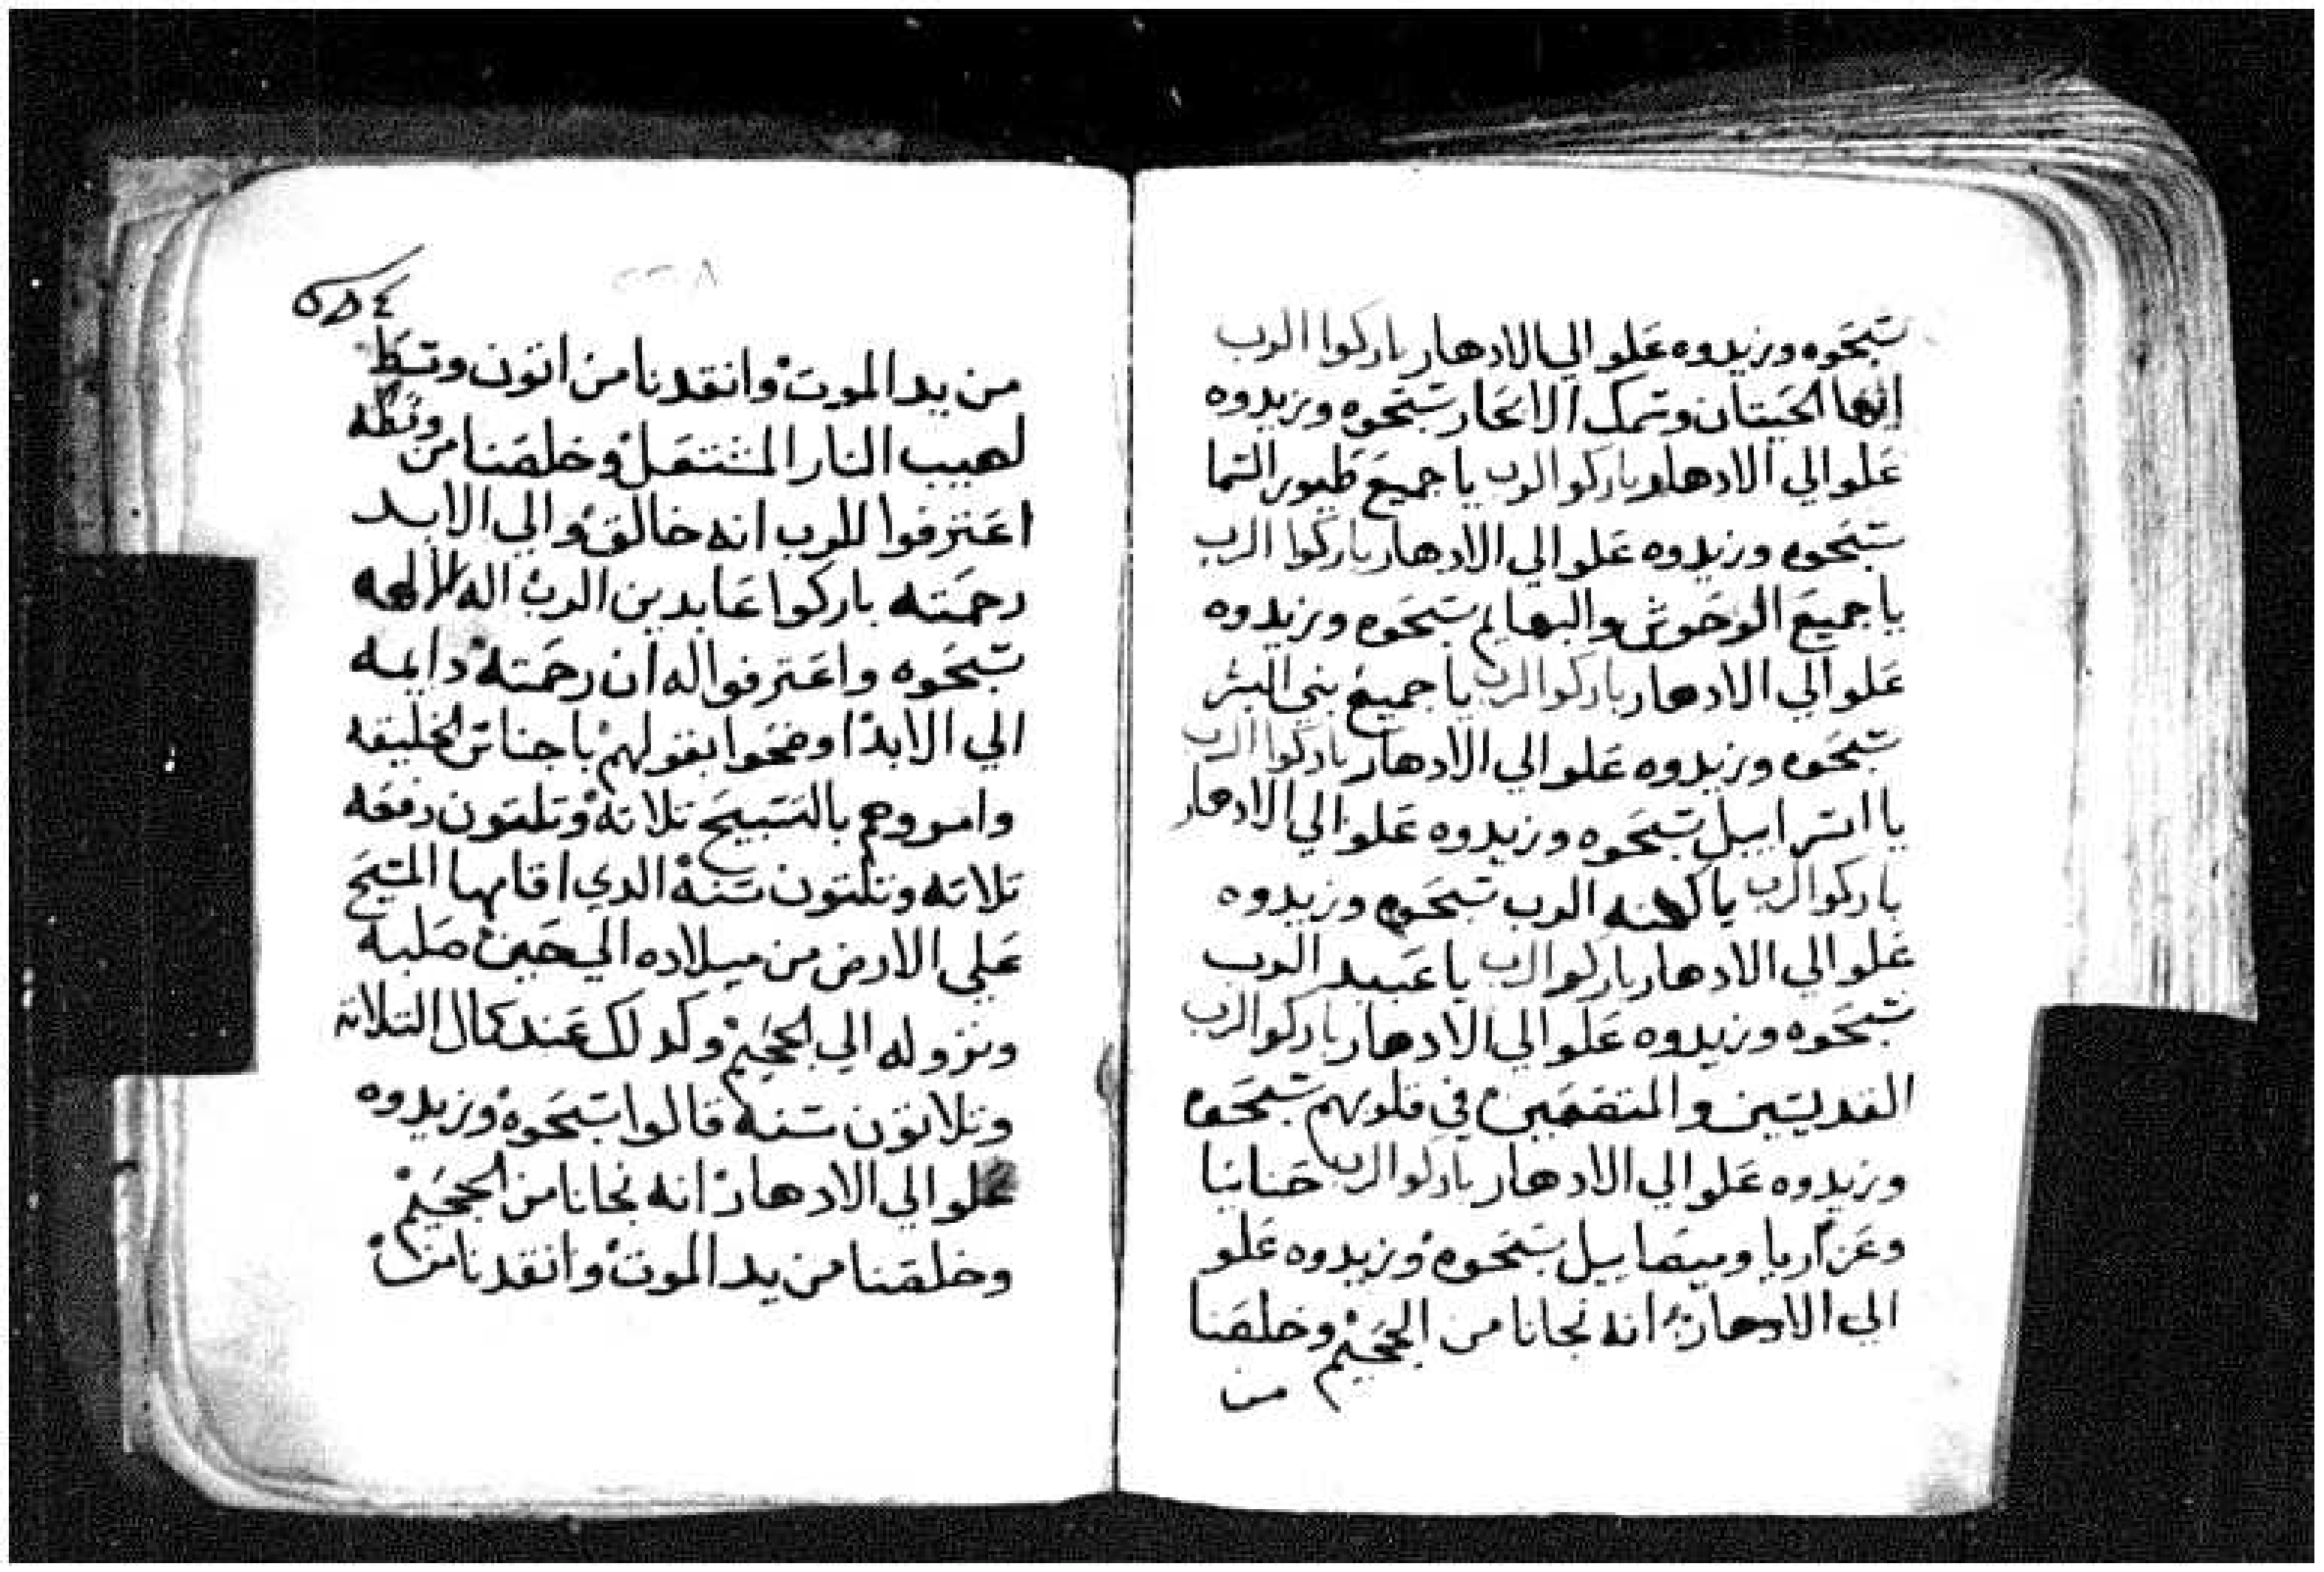 سبحوه وزيدوه علو الي الادهار باركوا الرب
ايها الحيتان وسمك الابحار سبحوه وزيدوه
علو الي الادهار باركو الرب يا جميع طيور السما
سبحوه وزيدوه علو الي الادهار باركوا الرب
يا جميع الوحوش والبهايم سبحوه وزيدوه
علو الي الادهار باركوا الرب يا جميع بني البشر
سبحوه وزيدوه علو الي الادهار باركوا الرب
يا اسراييل سبحوه وزيدوه علو الي الادهار
باركوا الرب يا كهنه الرب سبحوه وزيدوه
علو الي الادهار باركوا الرب يا عبيد الرب
سبحوه وزيدوه علو الي الادهار باركوا الرب
القديسين والمتضعين في قلوبهم سبحوه
وزيدوه علو الي الادهار باركوا الرب حنانيا
وعزاريا وميصاييل سبحوه وزيدوه علو
الي الادهار انه نجانا من الجحيم وخلصنا
من
٥٨٤
من يد الموت وانقدنا من اتون وسط
لهيب النار المشتعل وخلصنا من وسطه
اعترفوا للرب انه خالق والي الابد
رحمته باركوا عابدين الرب اله الالهه
سبحوه واعترفوا له ان رحمته دايمه
الي الابد اوضحوا بقولهم باجناس الخليقه
وامروهم بالتسبيح تلاتة وتلتون دفعه
تلاته وتلتون سنة الدي اقامها المسيح
علي الارض من ميلاده الي حين صلبه
ونزوله الي الجحيم وكدلك عند كمال التلاته
وتلاتون سنة قالوا سبحوه وزيدوه
علو الي الادهار انه نجانا من الجحيم
وخلصنا من يد الموت وانقدنا من